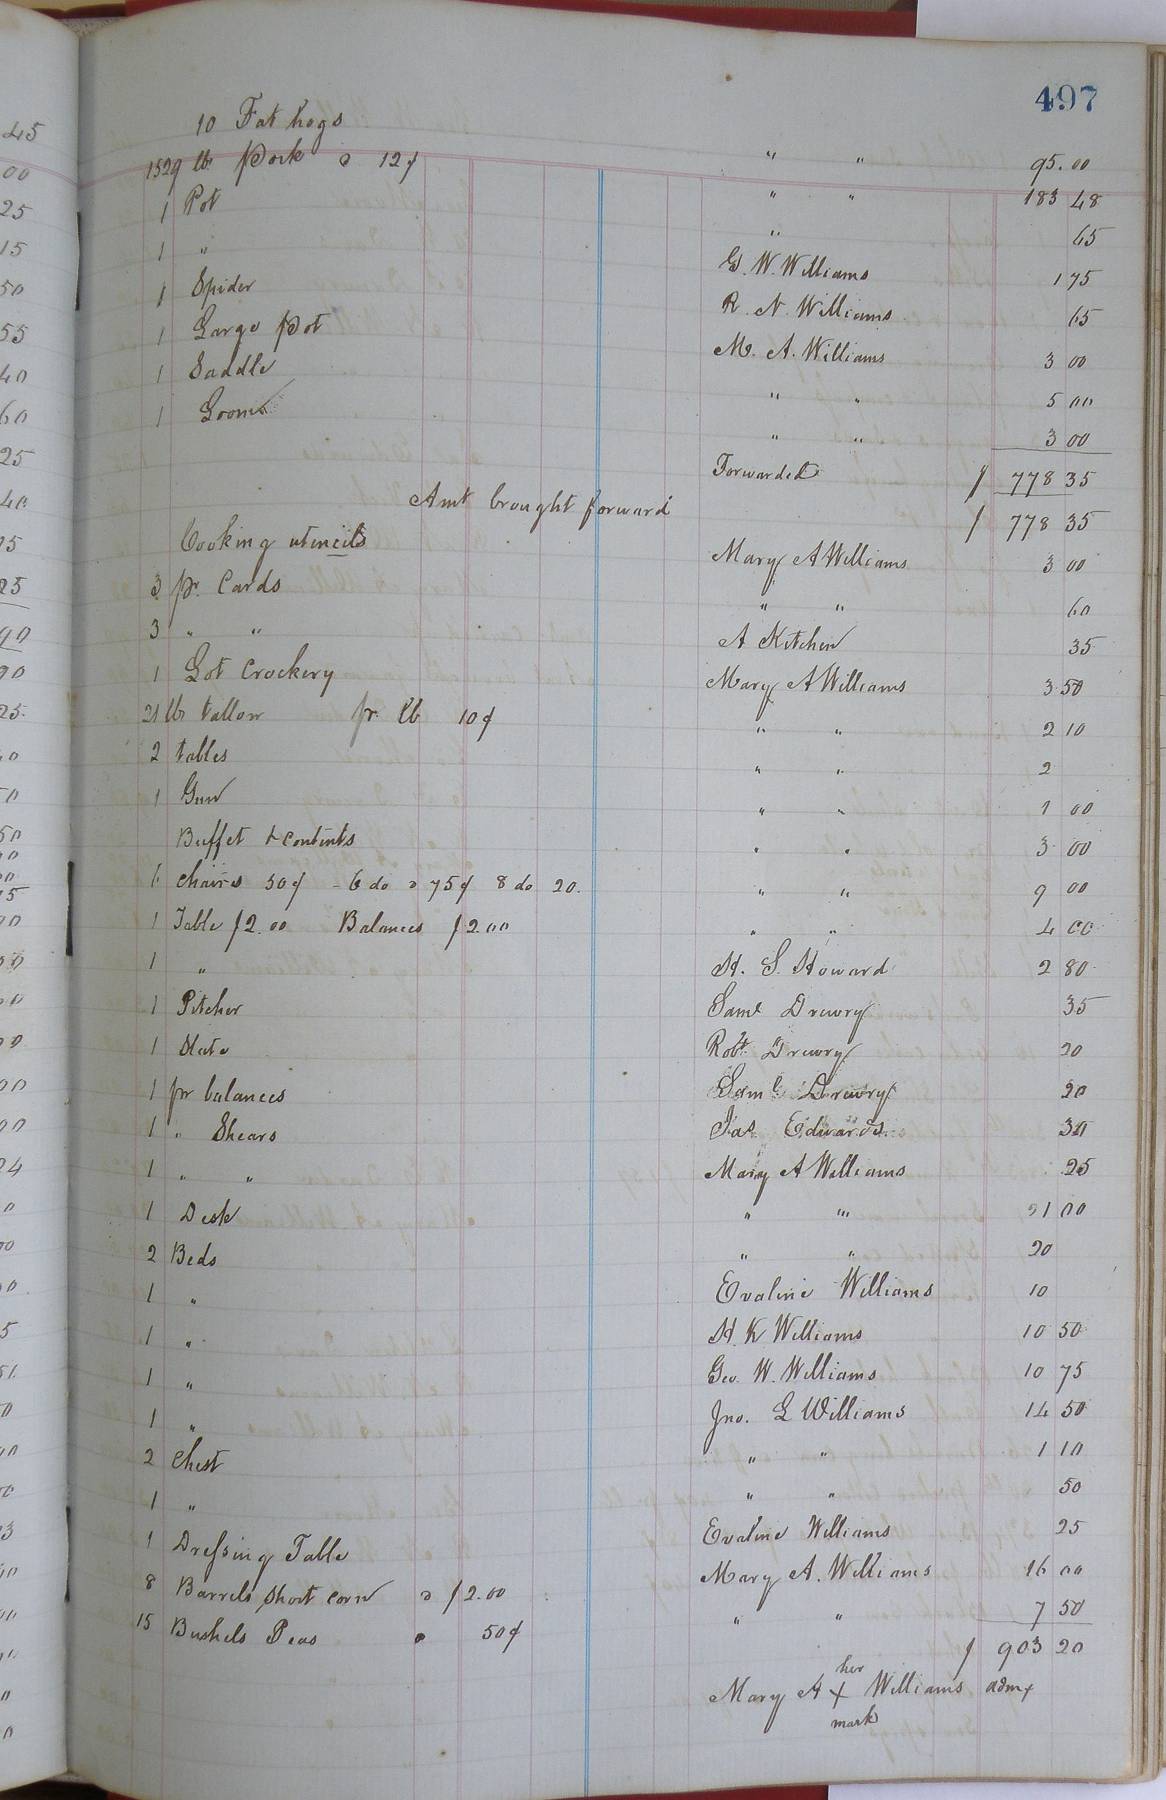 497
10 Fat hogs " " 95.00
1529 lb Pork @ 12¢ " " 183 48
1 Pot " 65
1 " G. W. Williams 1 75
1 Spider R. N. Williams 65
1 Large Pot M. A. Williams 3 00
1 Saddle " " 5 00
1 Loom " " 3 00
Forwarded $ 778 35
Amt brought forward $ 778 35
Cooking utencils Mary A Williams 3 00
3 pr. Cards " " 60
3 " " A Kitchen 35
1 Lot Crockery Mary A Williams 3 50
21 lb tallow pr. lb 10¢ " " 2 10
2 tables " " 2
1 Gun " " 1 00
Buffet & contents " " 3 00
6 chairs 50¢ - 6 do @ 75¢ 8 do 20. " " 9 00
1 Table $2.00 Balances $2.00 " " 4 00
1 " H. S. Howard 2 80
1 Pitcher Saml Drewry 35
1 Slate Robt Drewry 20
1 pr balances Saml Drewry 20
1 " Shears Jas Edwards 30
1 " " Mary A Williams 25
1 Desk " " 21 00
2 Beds " " 20
1 " Evaline Williams 10
1 " H. K Williams 10 50
1 " Geo. W. Williams 10 75
1 " Jno. L Williams 14 50
2 Chest " " 1 10
1 " " " 50
1 Dressing Table Evaline Williams 25
8 Barrels Short corn @ $2.00 Mary A. Williams 16 00
15 Bushels Peas @ 50¢ " " 7 50
$ 903 20
her
Mary A X Williams admx
mark